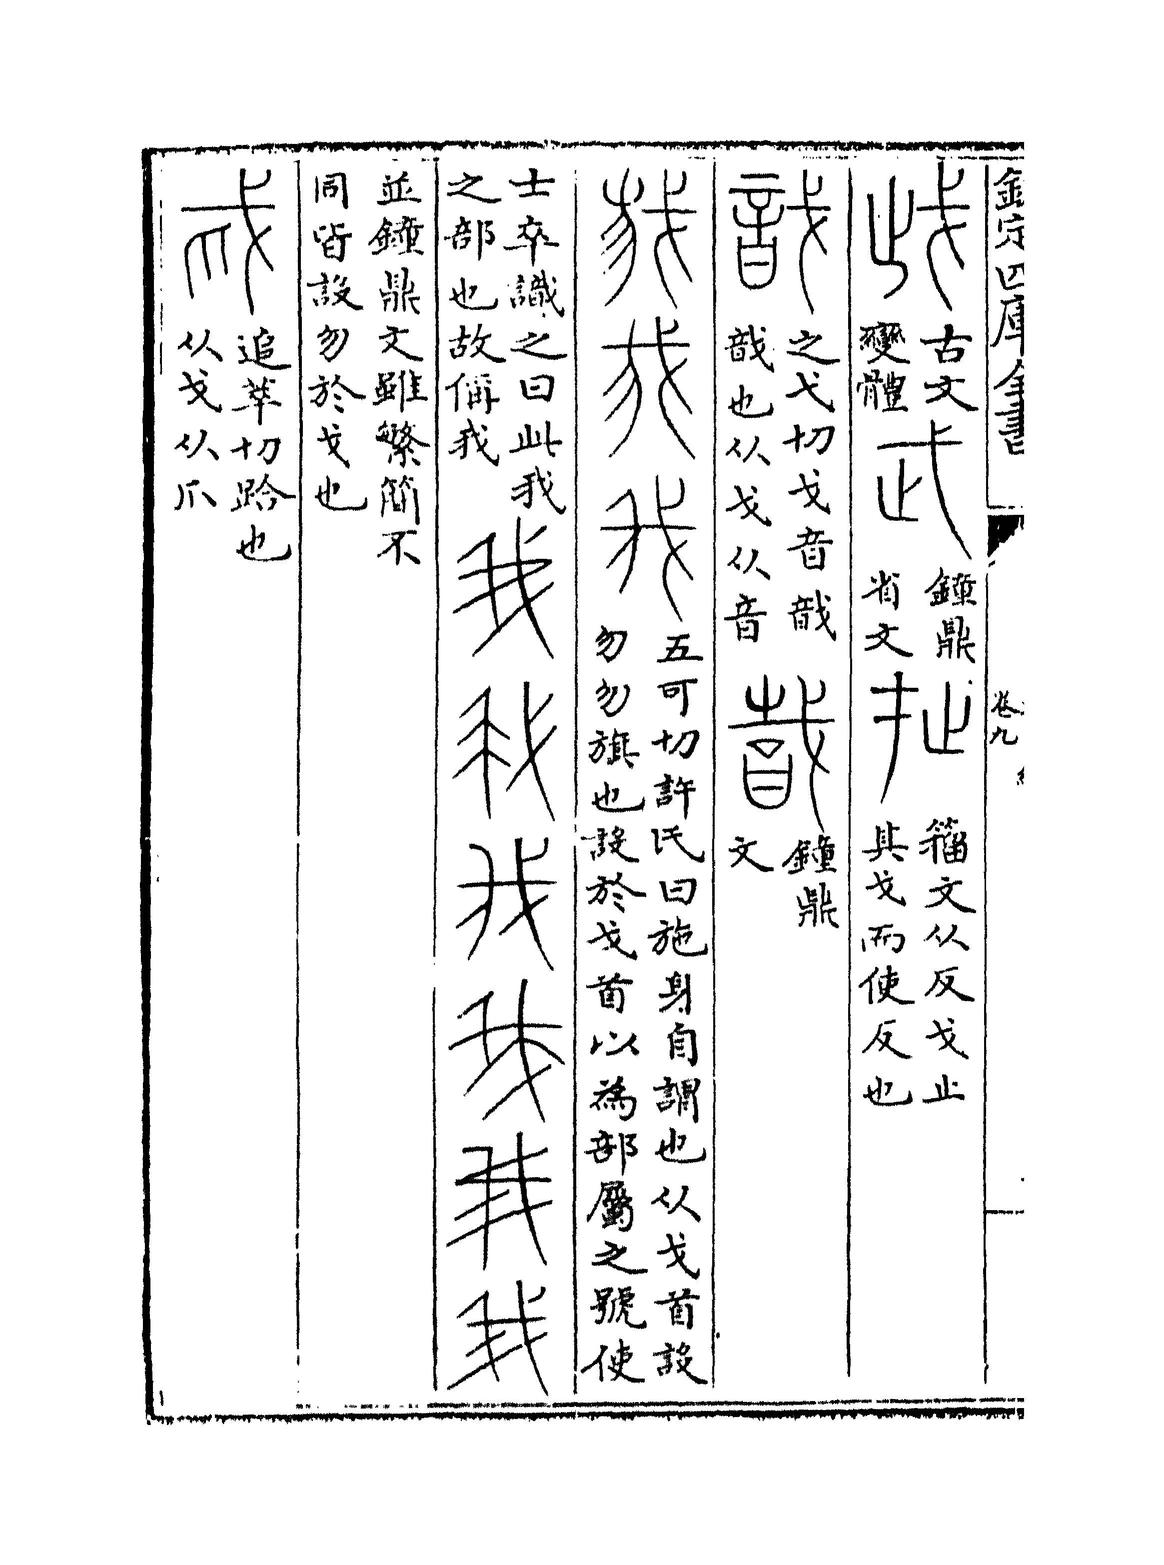 欽定四庫全書
卷九
古文
變體
鐘鼎
省文
籀文从反戈止
其戈而使反也
戠
之弋切戈音戠
戠也从戈从音
戠
鐘鼎
文
我我我
五可切許氏曰施身自謂也从戈首設
勿勿旗也設於戈首以為部屬之號使
士卒識之曰此我
之部也故偁我
我我我我我我
並鐘鼎文雖繁簡不
同皆設勿於戈也
追萃切跲也
从戈从爪